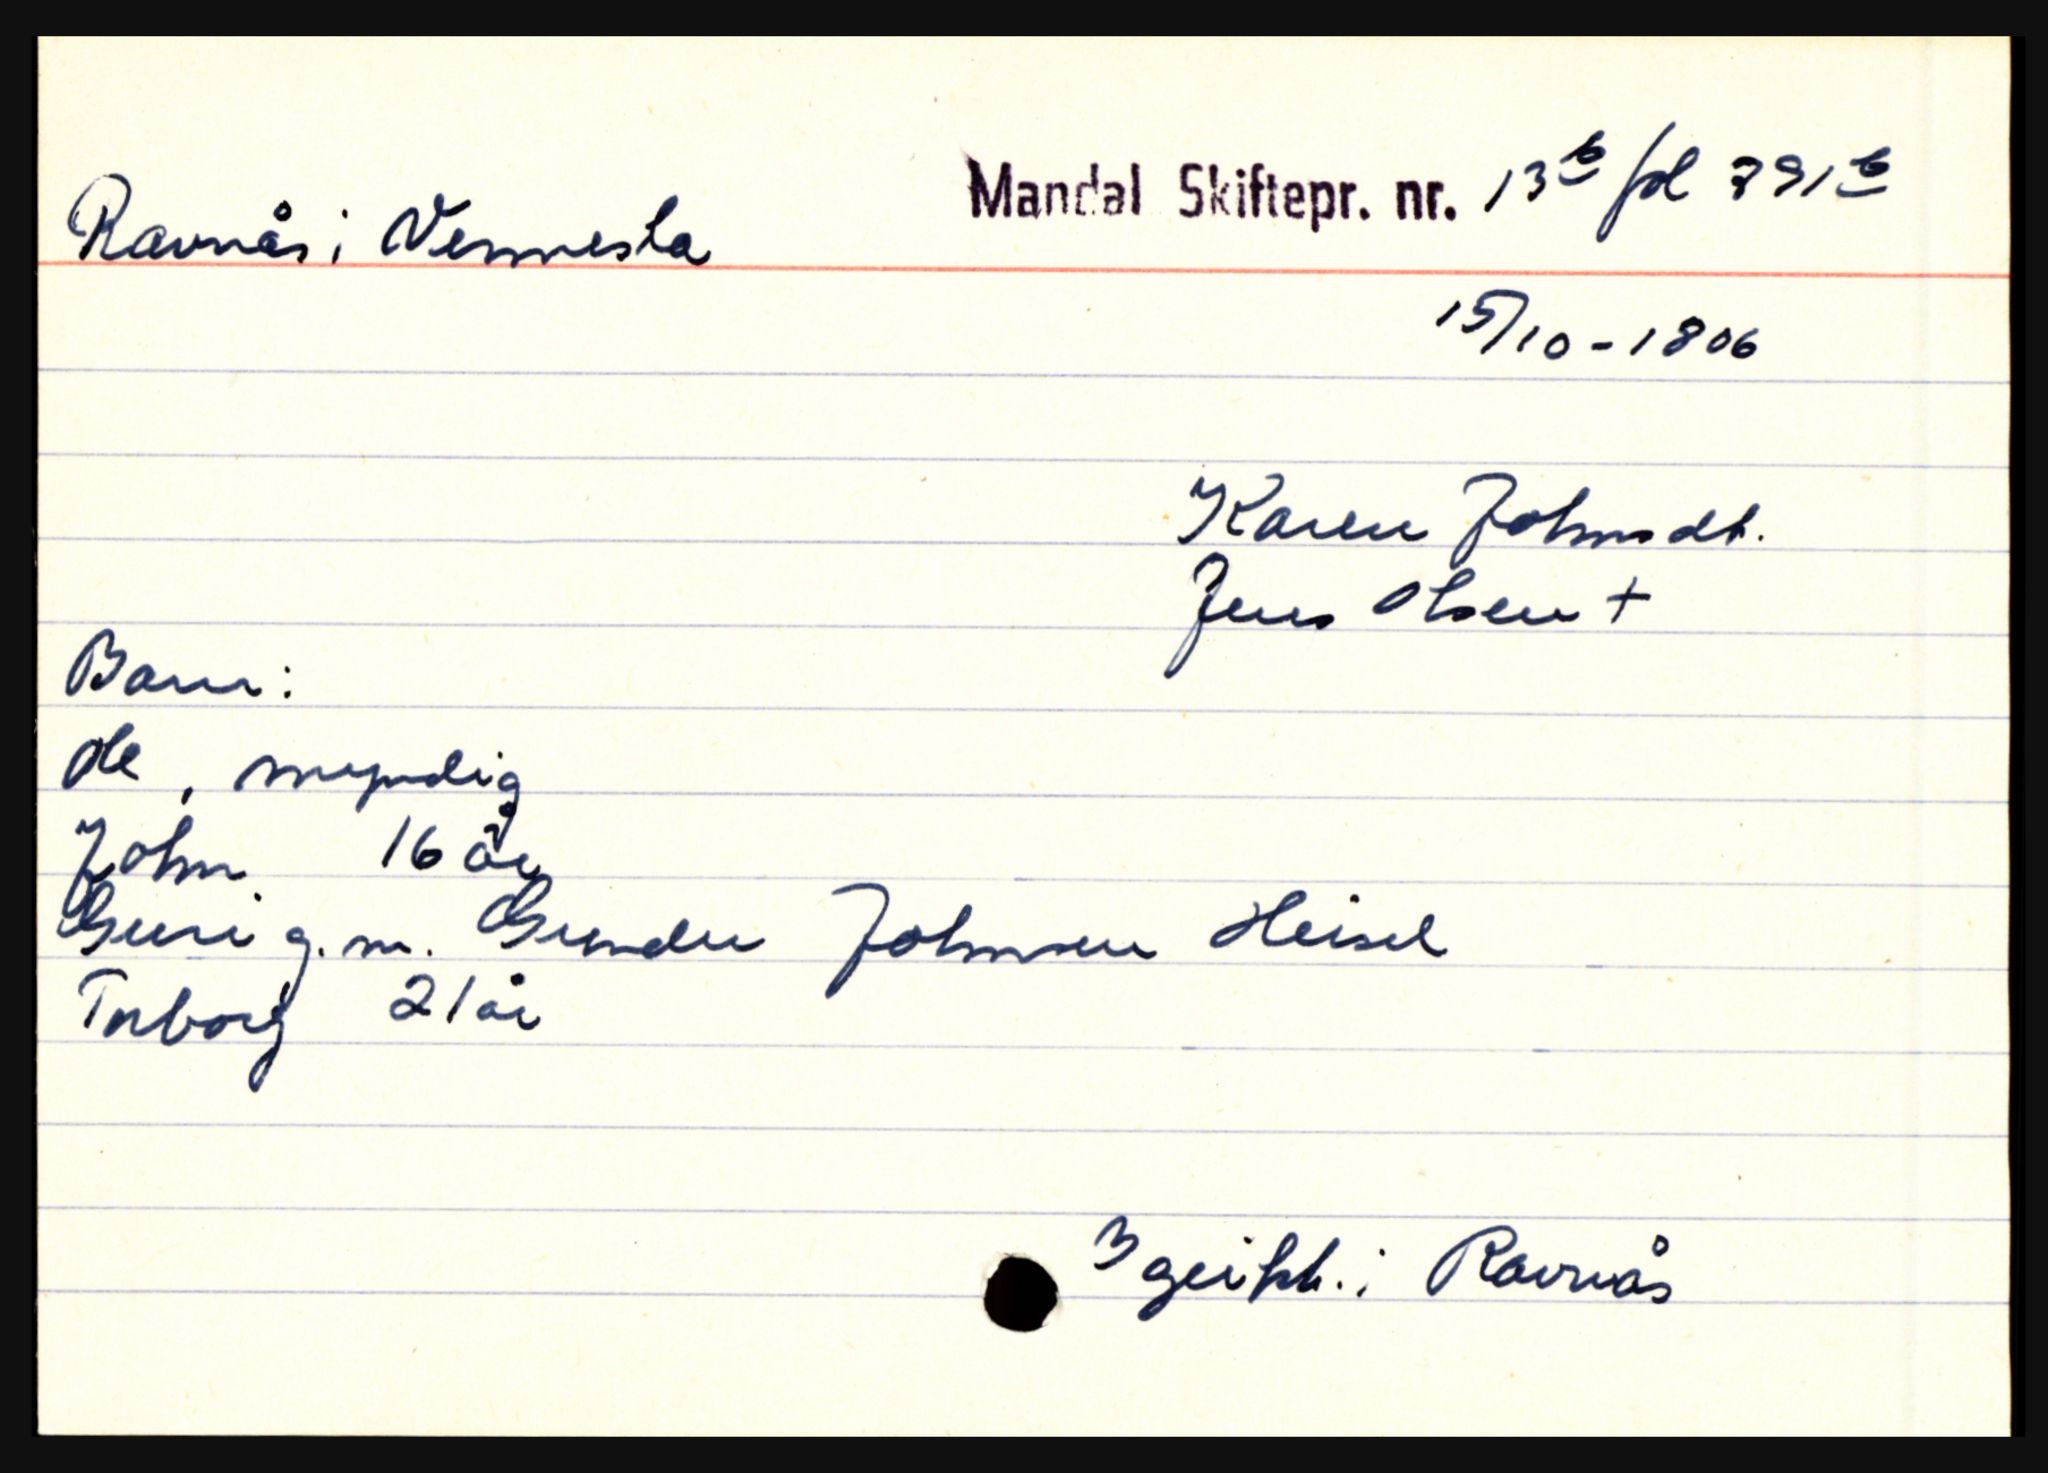 Mandal Skiftepr. nr. 13b fol 791b
Ravnås i Vennesla
15/10-1806
Karen Johnsdt.
Jens Olsen +
Barn:
Ole, myndig
John 16 år
Guri g.m. Gunder Johnsen Heisel
Torborg 21 år
3 geiskl. i Ravnås